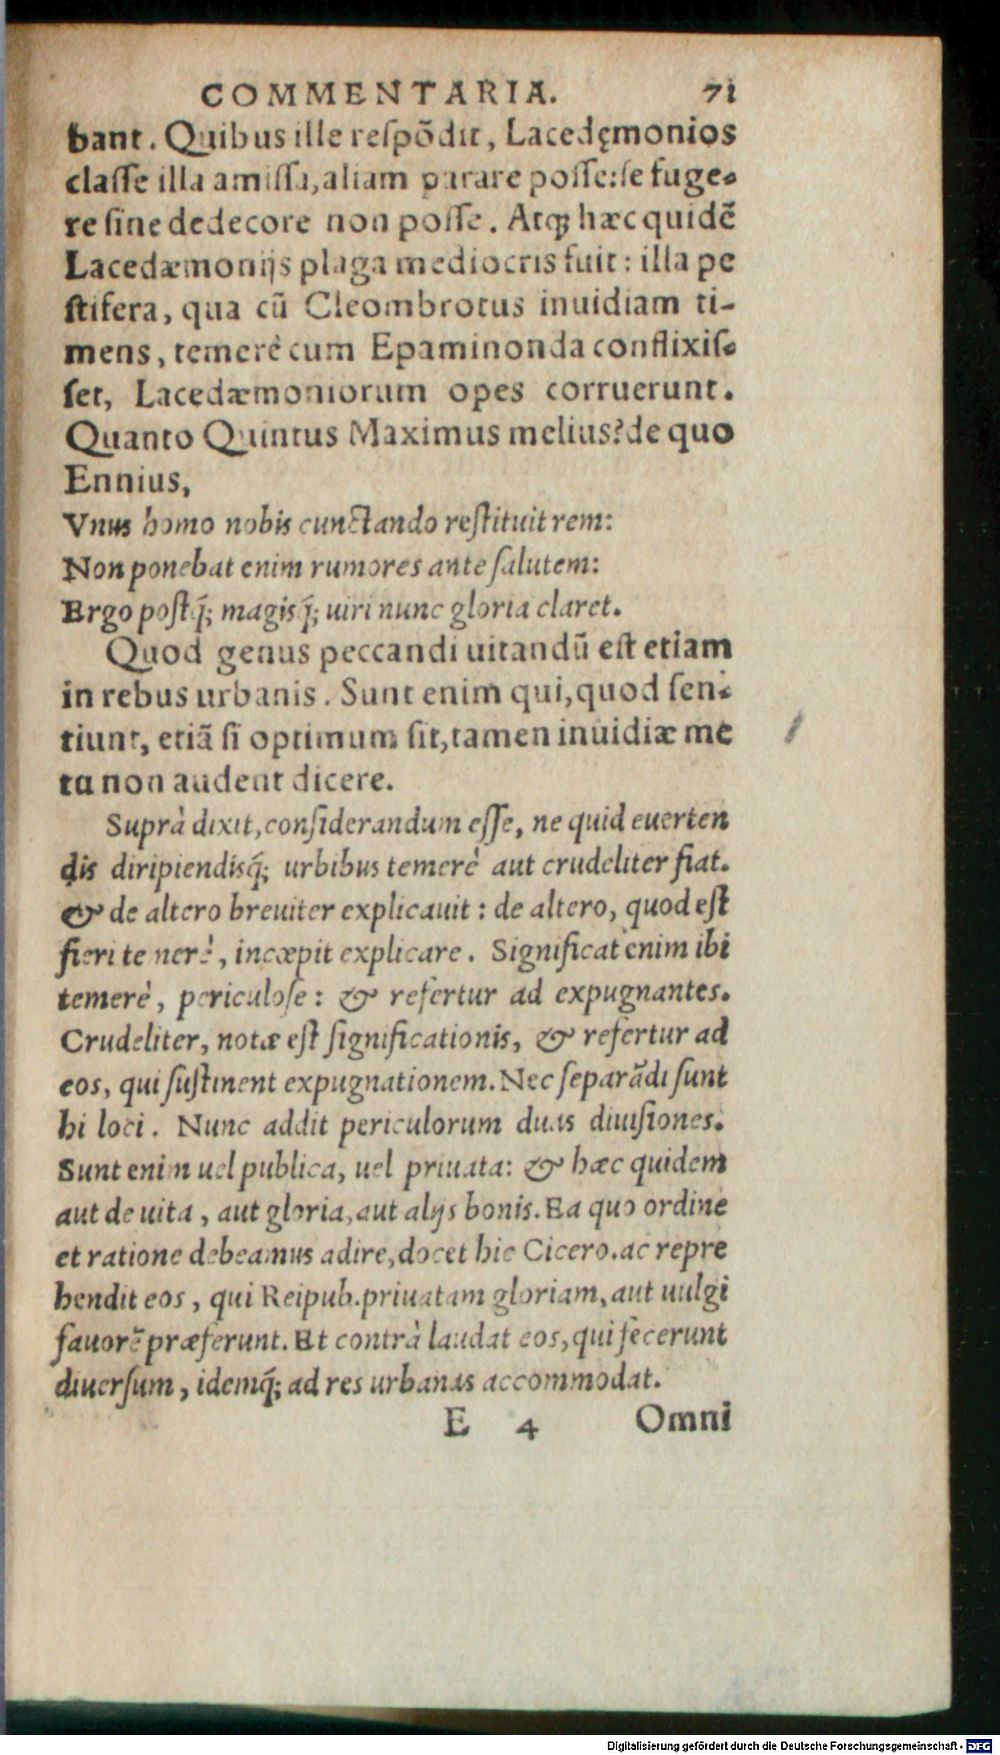 COMMENTARIA. 71
bant. Quibus ille reſpõdit, Lacedęmonios
claſſe illa amiſſa, aliam parare poſſe: ſe fuge-
re ſine dedecore non poſſe. Atq; hæc quidẽ
Lacedæmonijs plaga mediocris fuit: illa pe
ſtifera, qua cũ Cleombrotus inuidiam ti-
mens, temerè cum Epaminonda conflixiſ-
ſet, Lacedæmoniorum opes corruerunt.
Quanto Quintus Maximus melius? de quo
Ennius,
Vnus homo nobis cunctando reſtituit rem:
Non ponebat enim rumores ante ſalutem:
Ergo poſtq́; magisq́; uiri nunc gloria claret.
Quod genus peccandi uitandũ eſt etiam
in rebus urbanis. Sunt enim qui, quod ſen-
tiunt, etiã ſi optimum ſit, tamen inuidiæ me
tu non audent dicere.
Suprà dixit, conſiderandum eſſe, ne quid euerten
dis diripiendisq́; urbibus temerè aut crudeliter fiat.
& de altero breuiter explicauit: de altero, quod eſt
fieri temerè, incœpit explicare. Significat enim ibi
temerè, periculoſe: & refertur ad expugnantes.
Crudeliter, notæ eſt ſignificationis, & refertur ad
eos, qui ſuſtinent expugnationem. Nec ſeparãdi ſunt
hi loci. Nunc addit periculorum duas diuiſiones.
Sunt enim uel publica, uel priuata: & hæc quidem
aut de uita, aut gloria, aut alijs bonis. Ea quo ordine
et ratione debeamus adire, docet hic Cicero. ac repre
hendit eos, qui Reipub. priuatam gloriam, aut uulgi
fauorẽ præferunt. Et contrà laudat eos, qui fecerunt
diuerſum, idemq́; ad res urbanas accommodat.
E 4 Omni
Digitalisierung gefördert durch die Deutsche Forschungsgemeinschaft - DFG